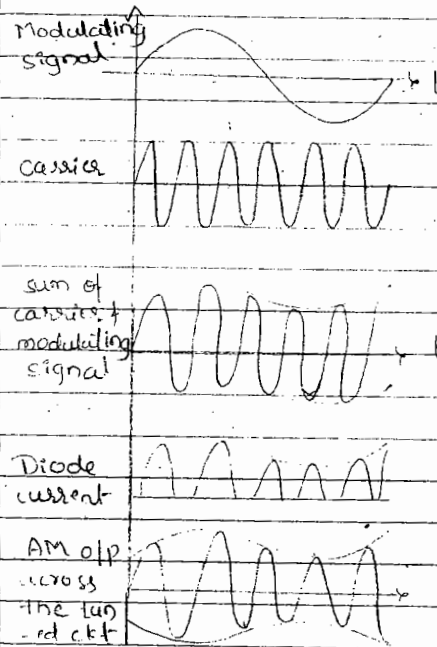 Modulating
signal
t
carrier
sum of
carrier +
modulating
signal
t
Diode
current
AM o/p
across
the tun
ed ckt